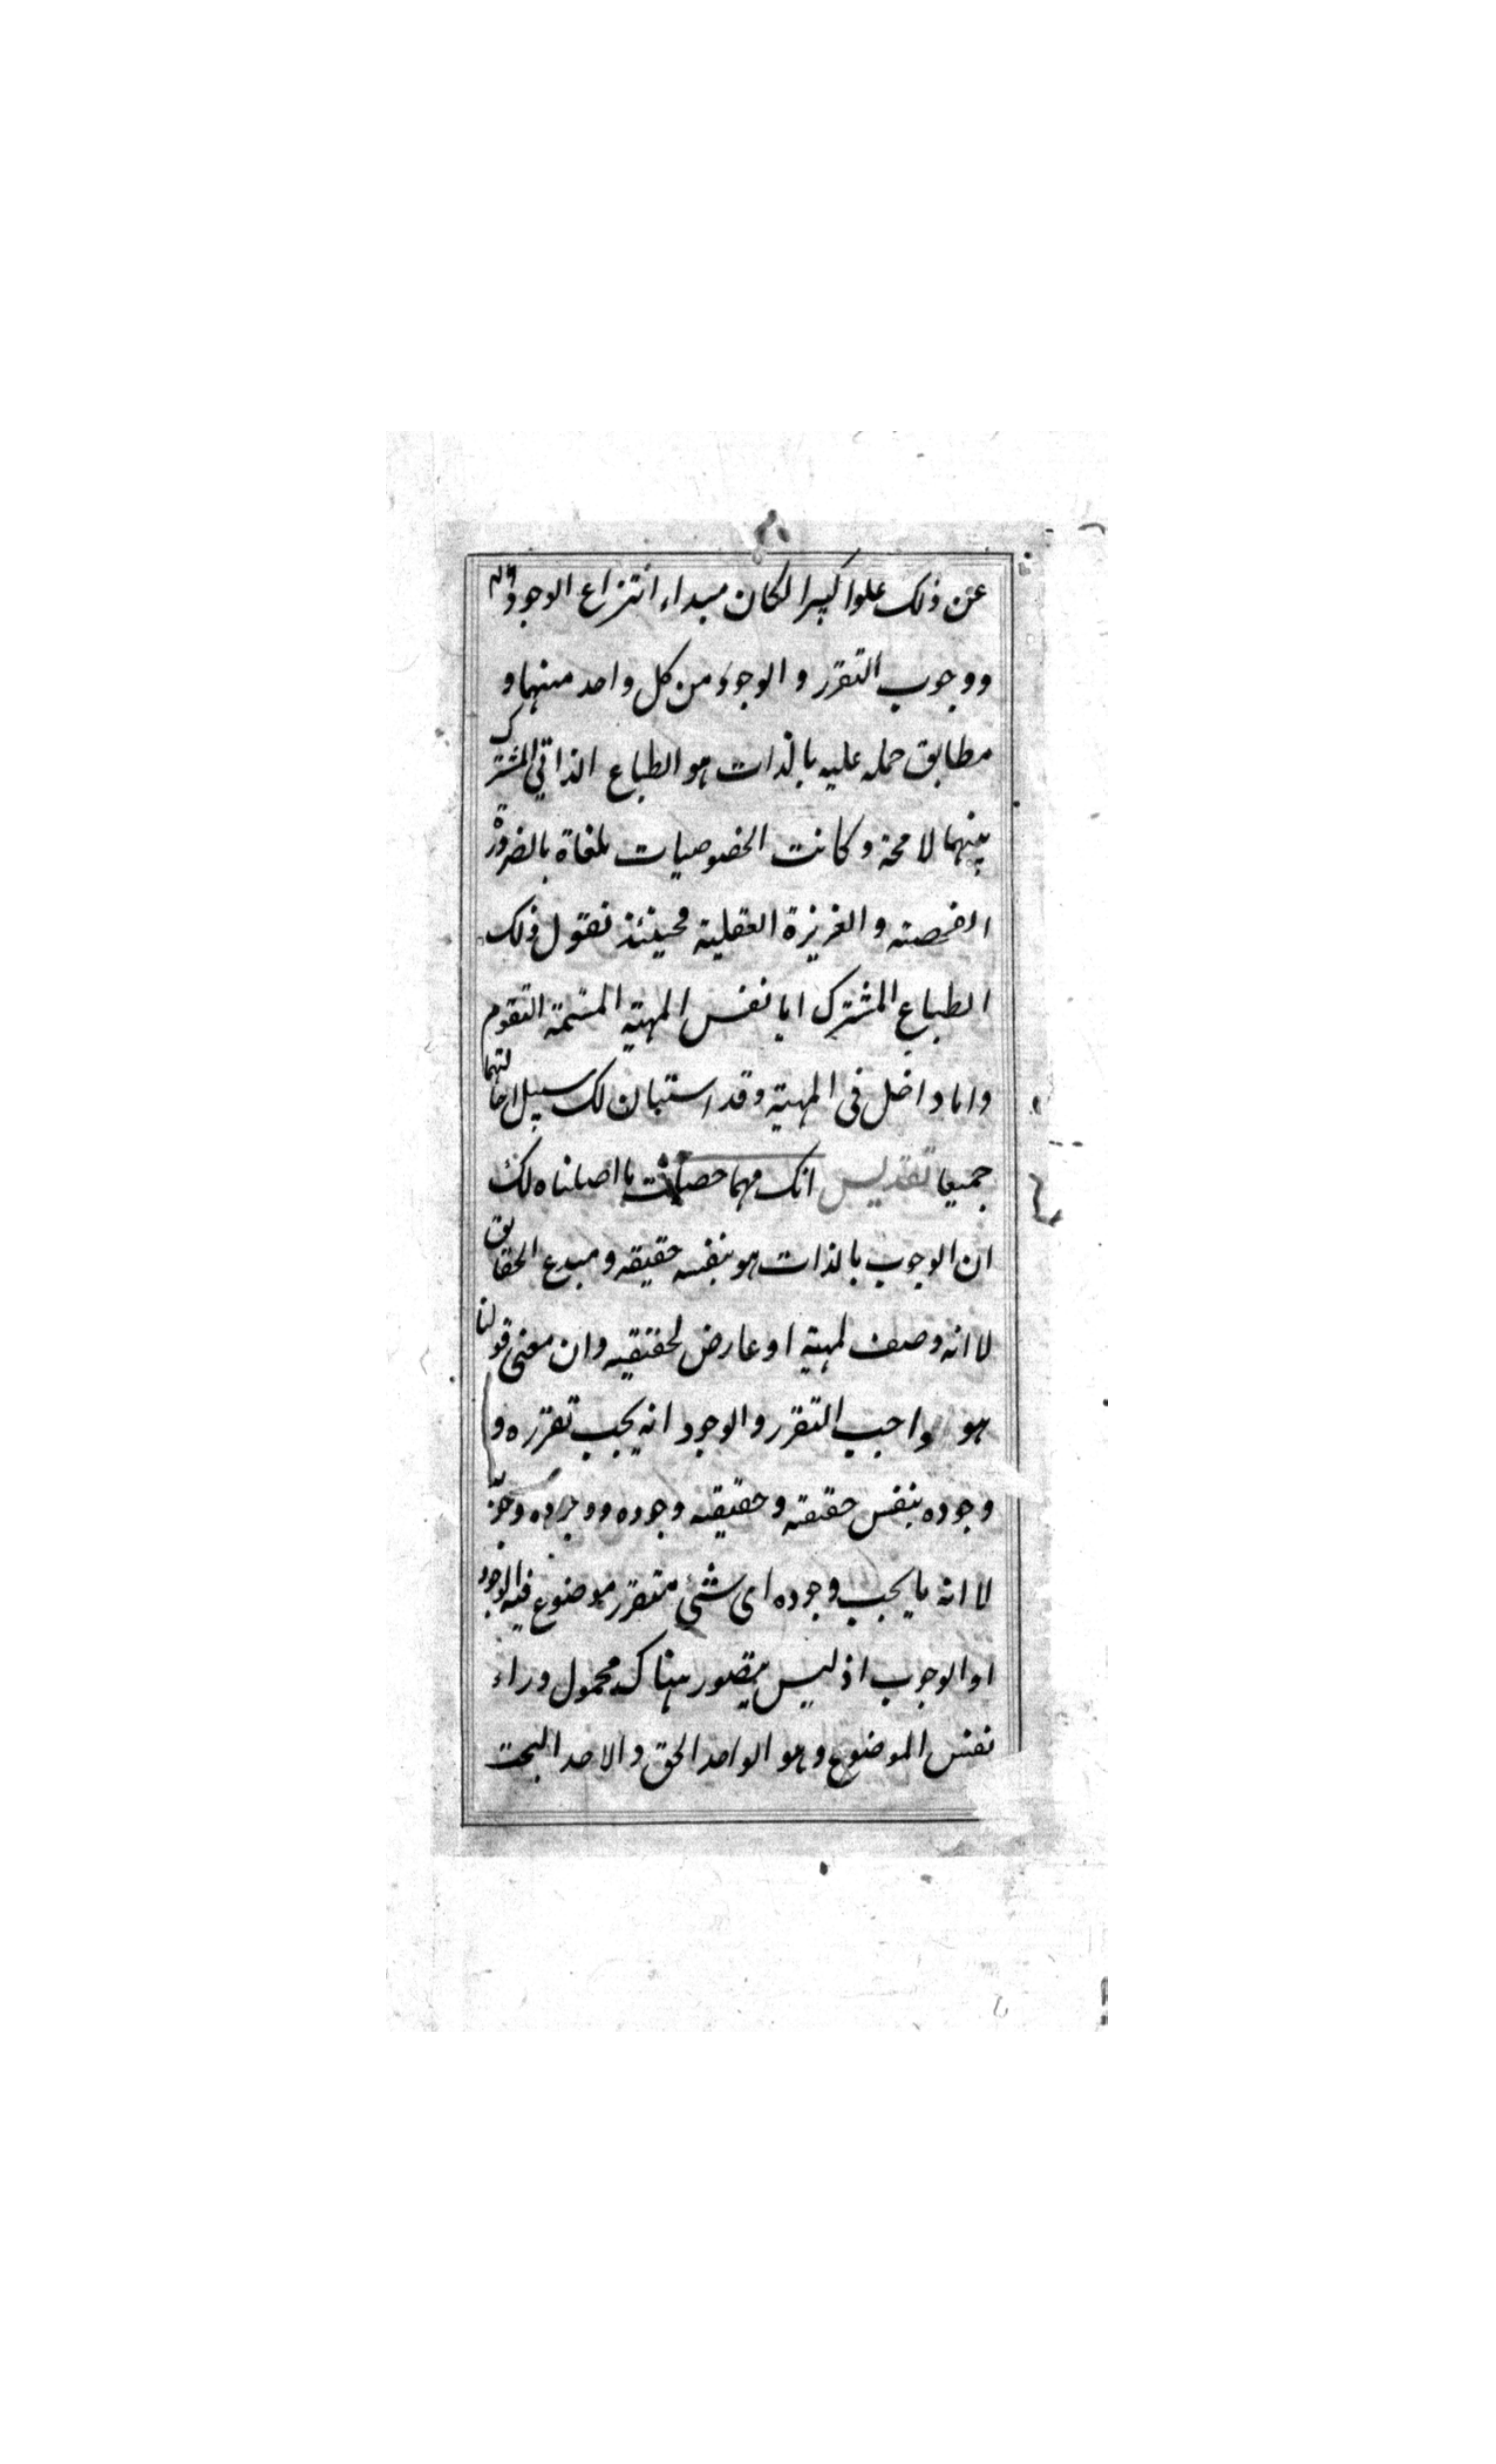 عن ذلك علوا كبيرا لكان مبداء انتزاع الوجود
ووجوب التقرر والوجود من كل واحد منهما و
مطابق حمله عليه بالذات هو الطباع الذاتي المشترك
بينهما لا محة وكانت الخصوصيات ملغاة بالضرورة
الفحصية والغريزة العقلية فحينئذ نقول ذلك
الطباع المشترك اما نفس المهية المتممة التقوم
واما داخل في المهية وقد استبان لك سبيل احالتهما
جميعا تقديس انك مهما حصلت ما اصلناه لك
ان الوجوب بالذات هو بنفسه حقيقه ومبدع الحقايق
لا انه وصف لمهية او عارض لحقيقيه وان معنى قولنا
هو واجب التقرر والوجود انه يجب تقرره و
وجوده بنفس حقيقته وحقيقته وجوده ووجوده وجوبه
لا انه ما يجب وجوده اى شئ متقرر موضوع فيه الوجود
او الوجوب اذ ليس يتصور هناك محمول وراء
نفس الموضوع وهو الواحد الحق والاحد البحت